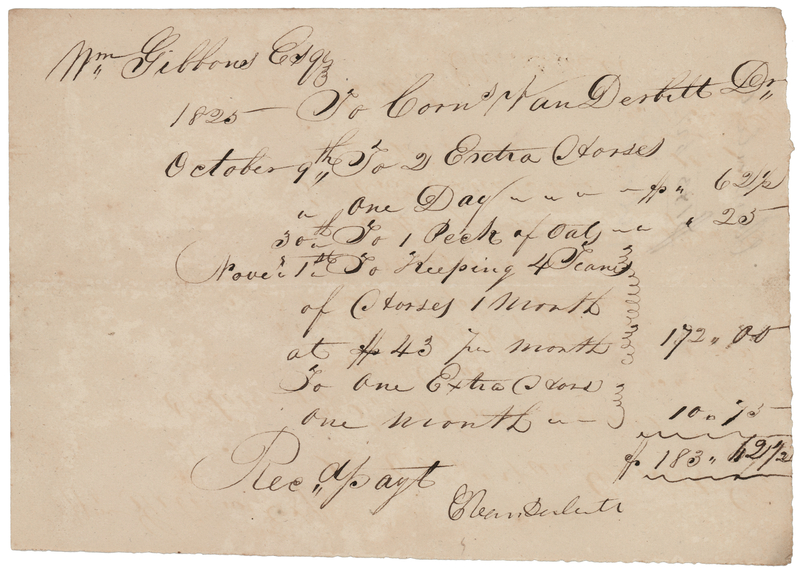 Wm Gibbons Esqr
1825 — To Corns Van Derbilt Dr
October 9th To 2 Exetra Horses
" One Day " " " $ " 62 1/2
30th To 1 Peck of Oats " " " 25
Nover 1st To Keeping 4 Teams
of Horses 1 Month
at $ 43 per month 172 " 00
To One Extra Hors
One Month " — 10 " 75
$ 183 " 62 1/2
Recd payt
CVanderbilt